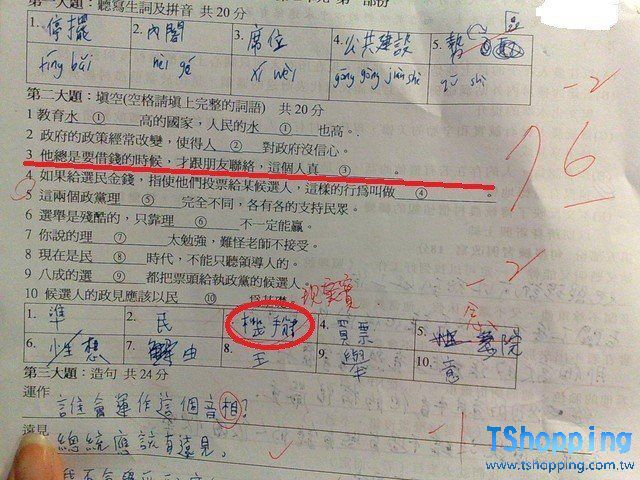 第一大題：聽寫生詞及拼音 共20分
1. 停擺 2. 內閣 3. 席位 4. 公共建設 5.
tíng bǎi nèi gé xí wèi gōng gòng jiàn shè qū shì
-2
76
第二大題：填空(空格請填上完整的詞語) 共20分
1 教育水 ① 高的國家，人民的水 ① 也高。
2 政府的政策經常改變，使得人 ② 對政府沒信心。
3 他總是要借錢的時候，才跟朋友聯絡，這個人真 ③ 。
4 如果給選民金錢，指使他們投票給某候選人，這樣的行爲叫做 ④ 。
5 這兩個政黨理 ⑤ 完全不同，各有各的支持民眾。
6 選舉是殘酷的，只靠理 ⑥ 不一定能贏。
7 你說的理 ⑦ 太勉強，難怪老師不接受。
8 現在是民 ⑧ 時代，不能只聽領導人的。
9 八成的選 ⑨ 都把票頭給執政黨的候選人
10 候選人的政見應該以民 ⑩ 爲基礎
現實
-2
1. 準 2. 民 機車 4. 買票 5. 念
6. 想 7. 由 8. 主 9. 舉 10. 意
第三大題：造句 共24分
運作
誰會運作這個音相?
遠見
總統應該有遠見。
-1
TShopping
www.tshopping.com.tw